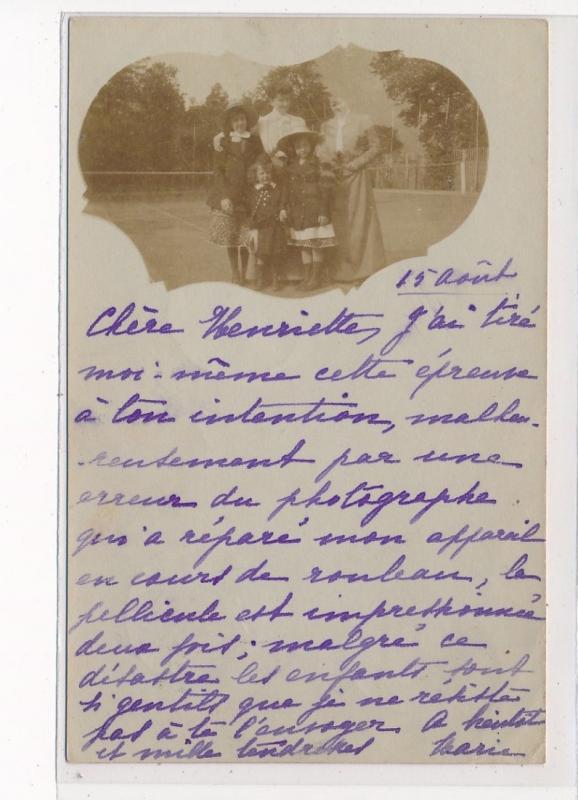 15 Août
Chère Henriette, J'ai tiré
moi-même cette épreuve
à ton intention, malheu-
-reusement par une
erreur du photographe
qui a réparé mon appareil
en cours de rouleau, la
pellicule est impressionnée
deux fois; malgré ce
désastre les enfants sont
si gentils que je ne résiste
pas à te l'envoyer A bientôt
et mille tendresses Marie